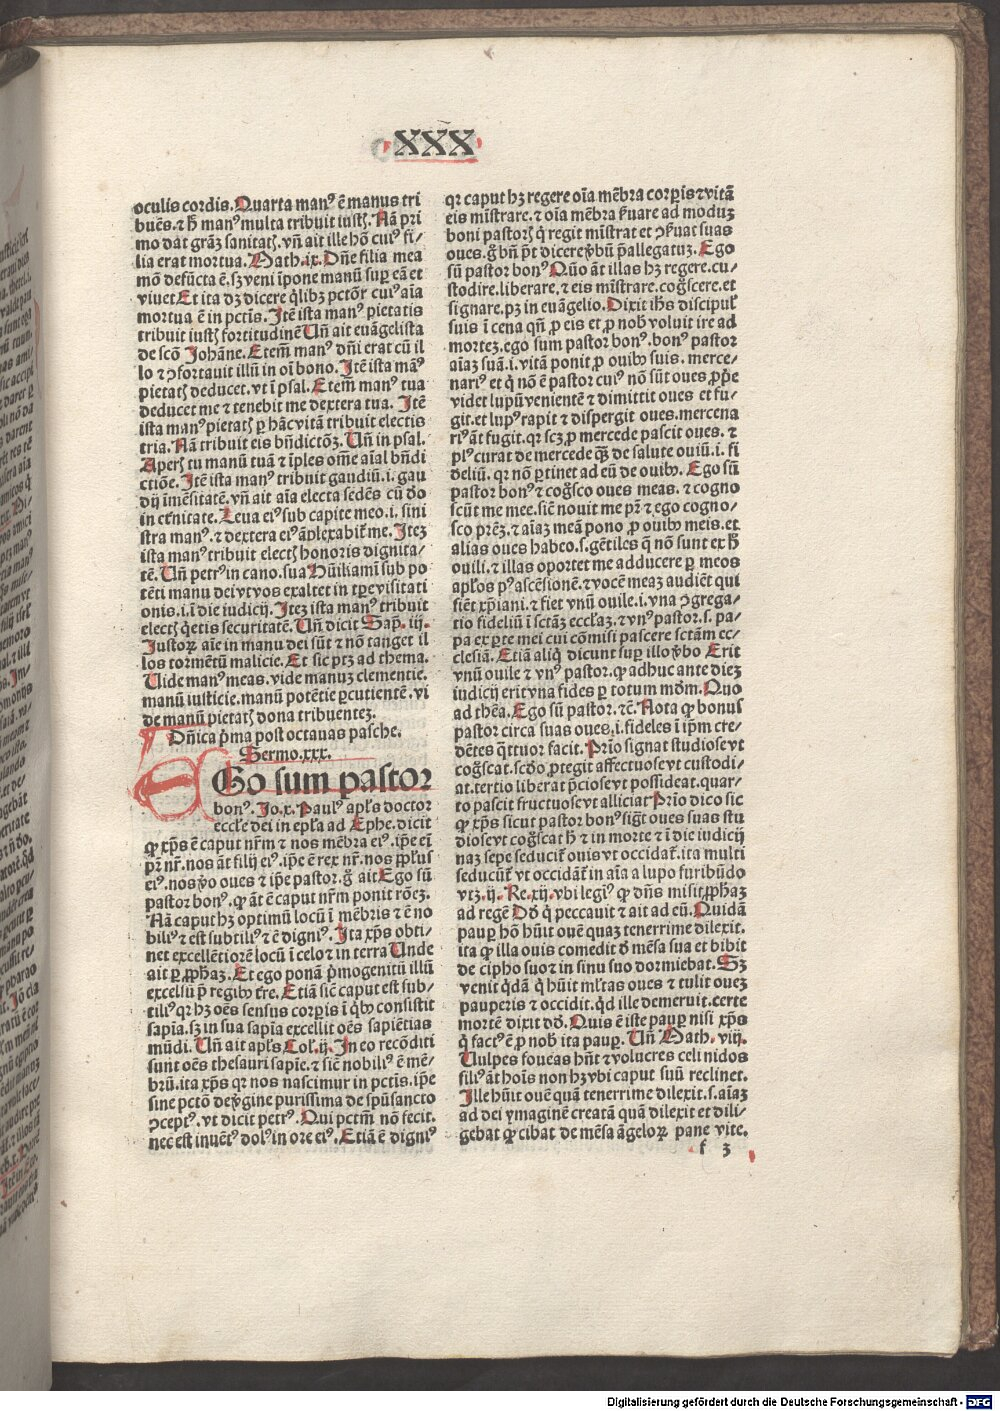 XXX
oculis cordis. Quarta manꝰ ē manus tri
buēs. ⁊ hͦ manꝰ multa tribuit iustꝭ. Nā pri
mo dat grāꝫ sanitatꝭ. vñ ait ille hō cuiꝰ fi-
lia erat mortua. Math. ix. Dñe filia mea
mō defūcta ē. sꝫ veni īpone manū suꝑ eā et
viuet. Et ita dꝫ dicere q̄libꝫ pctōr cuiꝰ aīa
mortua ē in pctis. Itē ista manꝰ pietatis
tribuit iustꝭ fortitudinē Uñ ait euāgelista
de scō Johāne. Etem̄ manꝰ dñi erat cū il
lo ⁊ ꝯfortauit illū in oī bono. Itē ista māꝰ
pietatꝭ deducet. vt ī psal. Etem̄ manꝰ tua
deducet me ⁊ tenebit me dextera tua. Itē
ista manꝰ pietatꝭ ꝑ hāc vitā tribuit electis
tria. Nā tribuit eis bñdictōꝫ. Uñ in psal.
Aperꝭ tu manū tuā ⁊ īples om̄e aīal bñdi
ctiōe. Itē ista manꝰ tribuit gaudiū. i. gau
dij īmēsitatē. vñ ait aīa electa sedēs cū dō
in et̄nitate. Leua eiꝰ sub capite meo. i. sini
stra manꝰ. ⁊ dextera eiꝰ āplexabit̄ me. Iteꝫ
ista manꝰ tribuit electꝭ honoris dignita-
tē. Uñ petrꝰ in cano. sua Hūikamī sub po
tēti manu dei vt vos exaltet in tꝑe visitati
onis. i. ī die iudicij. Iteꝫ ista manꝰ tribuit
electꝭ q̄etis securitatē. Uñ dicit Sap. iij.
Justoꝝ aīe in manu dei sūt ⁊ nō tanget il
los tormētū malicie. Et sic ptꝫ ad thema.
Uide manꝰ meas. vide manuꝫ clementie.
manū iusticie. manū potētie ꝑcutientē. vi
de manū pietatꝭ dona tribuenteꝫ.
Dñica p̄ma post octauas pasche.
Sermo. xxx.
EGo sum pastor
bonꝰ. Jo. x. Paulꝰ apl̄s doctor
eccl̄e dei in epl̄a ad Ephe. dicit
ꝙ xp̄s ē caput nr̄m ⁊ nos mēbra eiꝰ. ip̄e eī
pr̄ nr̄. nos āt filij eiꝰ. ip̄e ē rex nr̄. nos ppl̄us
eiꝰ. nos v̄o oues ⁊ ip̄e pastor. g̊ ait Ego sū
pastor bonꝰ. ꝙ āt ē caput nr̄m ponit rōeꝫ.
Nā caput hꝫ optimū locū ī mēbris ⁊ ē no
biliꝰ ⁊ est subtiliꝰ ⁊ ē digniꝰ. Ita xp̄s obti-
net excellētiorē locū ī celo ⁊ in terra Unde
ait ꝑ ꝓphaꝫ. Et ego ponā p̄mogenitū illū
excelsū p̄ regibꝰ tr̄e. Etiā sic̄ caput est sub-
tiliꝰ qꝛ hꝫ oēs sensus corꝑis ī qͥbꝰ consistit
sapīa. sꝫ in sua sapīa excellit oēs sapiētias
mūdi. Uñ ait apl̄s Col̄. ij. In eo recōditi
sunt oēs thesauri sapīe. ⁊ sic̄ nobiliꝰ ē mē-
brū. ita xp̄s qꝛ nos nascimur in pctis. ip̄e
sine pctō de v̄gine purissima de sp̄usancto
ꝯceptꝰ. vt dicit petrꝰ. Qui pctm̄ nō fecit.
nec est inuētꝰ dolꝰ in ore eiꝰ. Etiā ē digniꝰ
qꝛ caput hꝫ regere oīa mēbra corꝑis ⁊ vitā
eis mīstrare. ⁊ oīa mēbra ẜuare ad moduꝫ
boni pastorꝭ q̇ regit mīstrat et ꝯẜuat suas
oues. g̊ bñ p̄t dicere v̄bū p̄allegatuꝫ. Ego
sū pastor bonꝰ Qūo āt illas hꝫ regere. cu-
stodire. liberare. ⁊ eis mīstrare. cog̊scere. et
signare. pꝫ in euāgelio. Dixit ih̄s discipul̄
suis ī cena qn̄ ꝓ eis et ꝓ nob̄ voluit ire ad
morteꝫ. ego sum pastor bonꝰ. bonꝰ pastor
aīaꝫ suā. i. vitā ponit ꝓ ouibꝰ suis. merce-
nariꝰ et q̇ nō ē pastor cuiꝰ nō sūt oues ꝓp̄e
videt lupū venientē ⁊ dimittit oues et fu-
git. et lupꝰ rapit ⁊ dispergit oues. mercena
riꝰ āt fugit. qꝛ scꝫ ꝓ mercede pascit oues. ⁊
plꝰ curat de mercede qͣꝫ de salute ouiū. i. fi
deliū. qꝛ nō ꝑtinet ad eū de ouibꝰ. Ego sū
pastor bonꝰ ⁊ cog̊sco oues meas. ⁊ cogno
scūt me mee. sic̄ nouit me pr̄ ⁊ ego cogno-
sco prēꝫ. ⁊ aīaꝫ meā pono ꝓ ouibꝰ meis. et
alias oues habeo. s. gētiles q̄ nō sunt ex hͦ
ouili. ⁊ illas oportet me adducere ꝑ meos
apl̄os pꝰ ascēsionē. ⁊ vocē meaꝫ audiēt qui
fiēt xp̄iani. ⁊ fiet vnū ouile. i. vna ꝯgrega-
tio fideliū ī sctāꝫ eccl̄aꝫ. ⁊ vnꝰ pastor. s. pa-
pa ex ꝑte mei cui cōmisi pascere sctām ec-
clesiā. Etiā aliq̇ dicunt suꝑ illo v̄bo Erit
vnū ouile ⁊ vnꝰ pastor. ꝙ adhuc ante dieꝫ
iudicij erit vna fides ꝑ totum mdm̄. Quo
ad thēa. Ego sū pastor. ⁊c̄. Nota ꝙ bonus
pastor circa suas oues. i. fideles ī ip̄m cre-
dētes q̈ttuor facit. Prīo signat studiose vt
cog̊scat. scd̄o ꝓtegit affectuose vt custodi-
at. tertio liberat p̄ciose vt possideat. quar-
to pascit fructuose vt alliciat Prīo dico sic
ꝙ xp̄s sicut pastor bonꝰ sig̊t oues suas stu
diose vt cog̊scat hͦ ⁊ in morte ⁊ ī die iudicij
naꝫ sepe seducit̄ ouis vt occidat̄. ita multi
seducūt̄ vt occidāt̄ in aīa a lupo furibūdo
vtꝫ. ij. Re. xij. vbi legiꝰ ꝙ dñs misit ꝓphaꝫ
ad regē Dd̄ q̇ peccauit ⁊ ait ad eū. Quidā
pauꝑ hō hūit ouē quaꝫ tenerrime dilexit.
ita ꝙ illa ouis comedit d̄ mēsa sua et bibit
de cipho suo ⁊ in sinu suo dormiebat. Sꝫ
venit q̇dā q̇ hūit ml̄tas oues ⁊ tulit oueꝫ
pauperis ⁊ occidit. qd̄ ille demeruit. certe
mortē dixit dd̄. Quis ē iste pauꝑ nisi xp̄s
q̇ factꝰ ē ꝓ nob̄ ita pauꝑ. Uñ Math. viij.
Uulpes foueas hñt ⁊ volucres celi nidos
filiꝰ āt hoīs non hꝫ vbi caput suū reclinet.
Ille hūit ouē quā tenerrime dilexit. s. aīaꝫ
ad dei ymaginē creatā quā dilexit et dili-
gebat ꝙ cibat de mēsa āgeloꝝ pane vite.
f 3
Digitalisierung gefördert durch die Deutsche Forschungsgemeinschaft - DFG